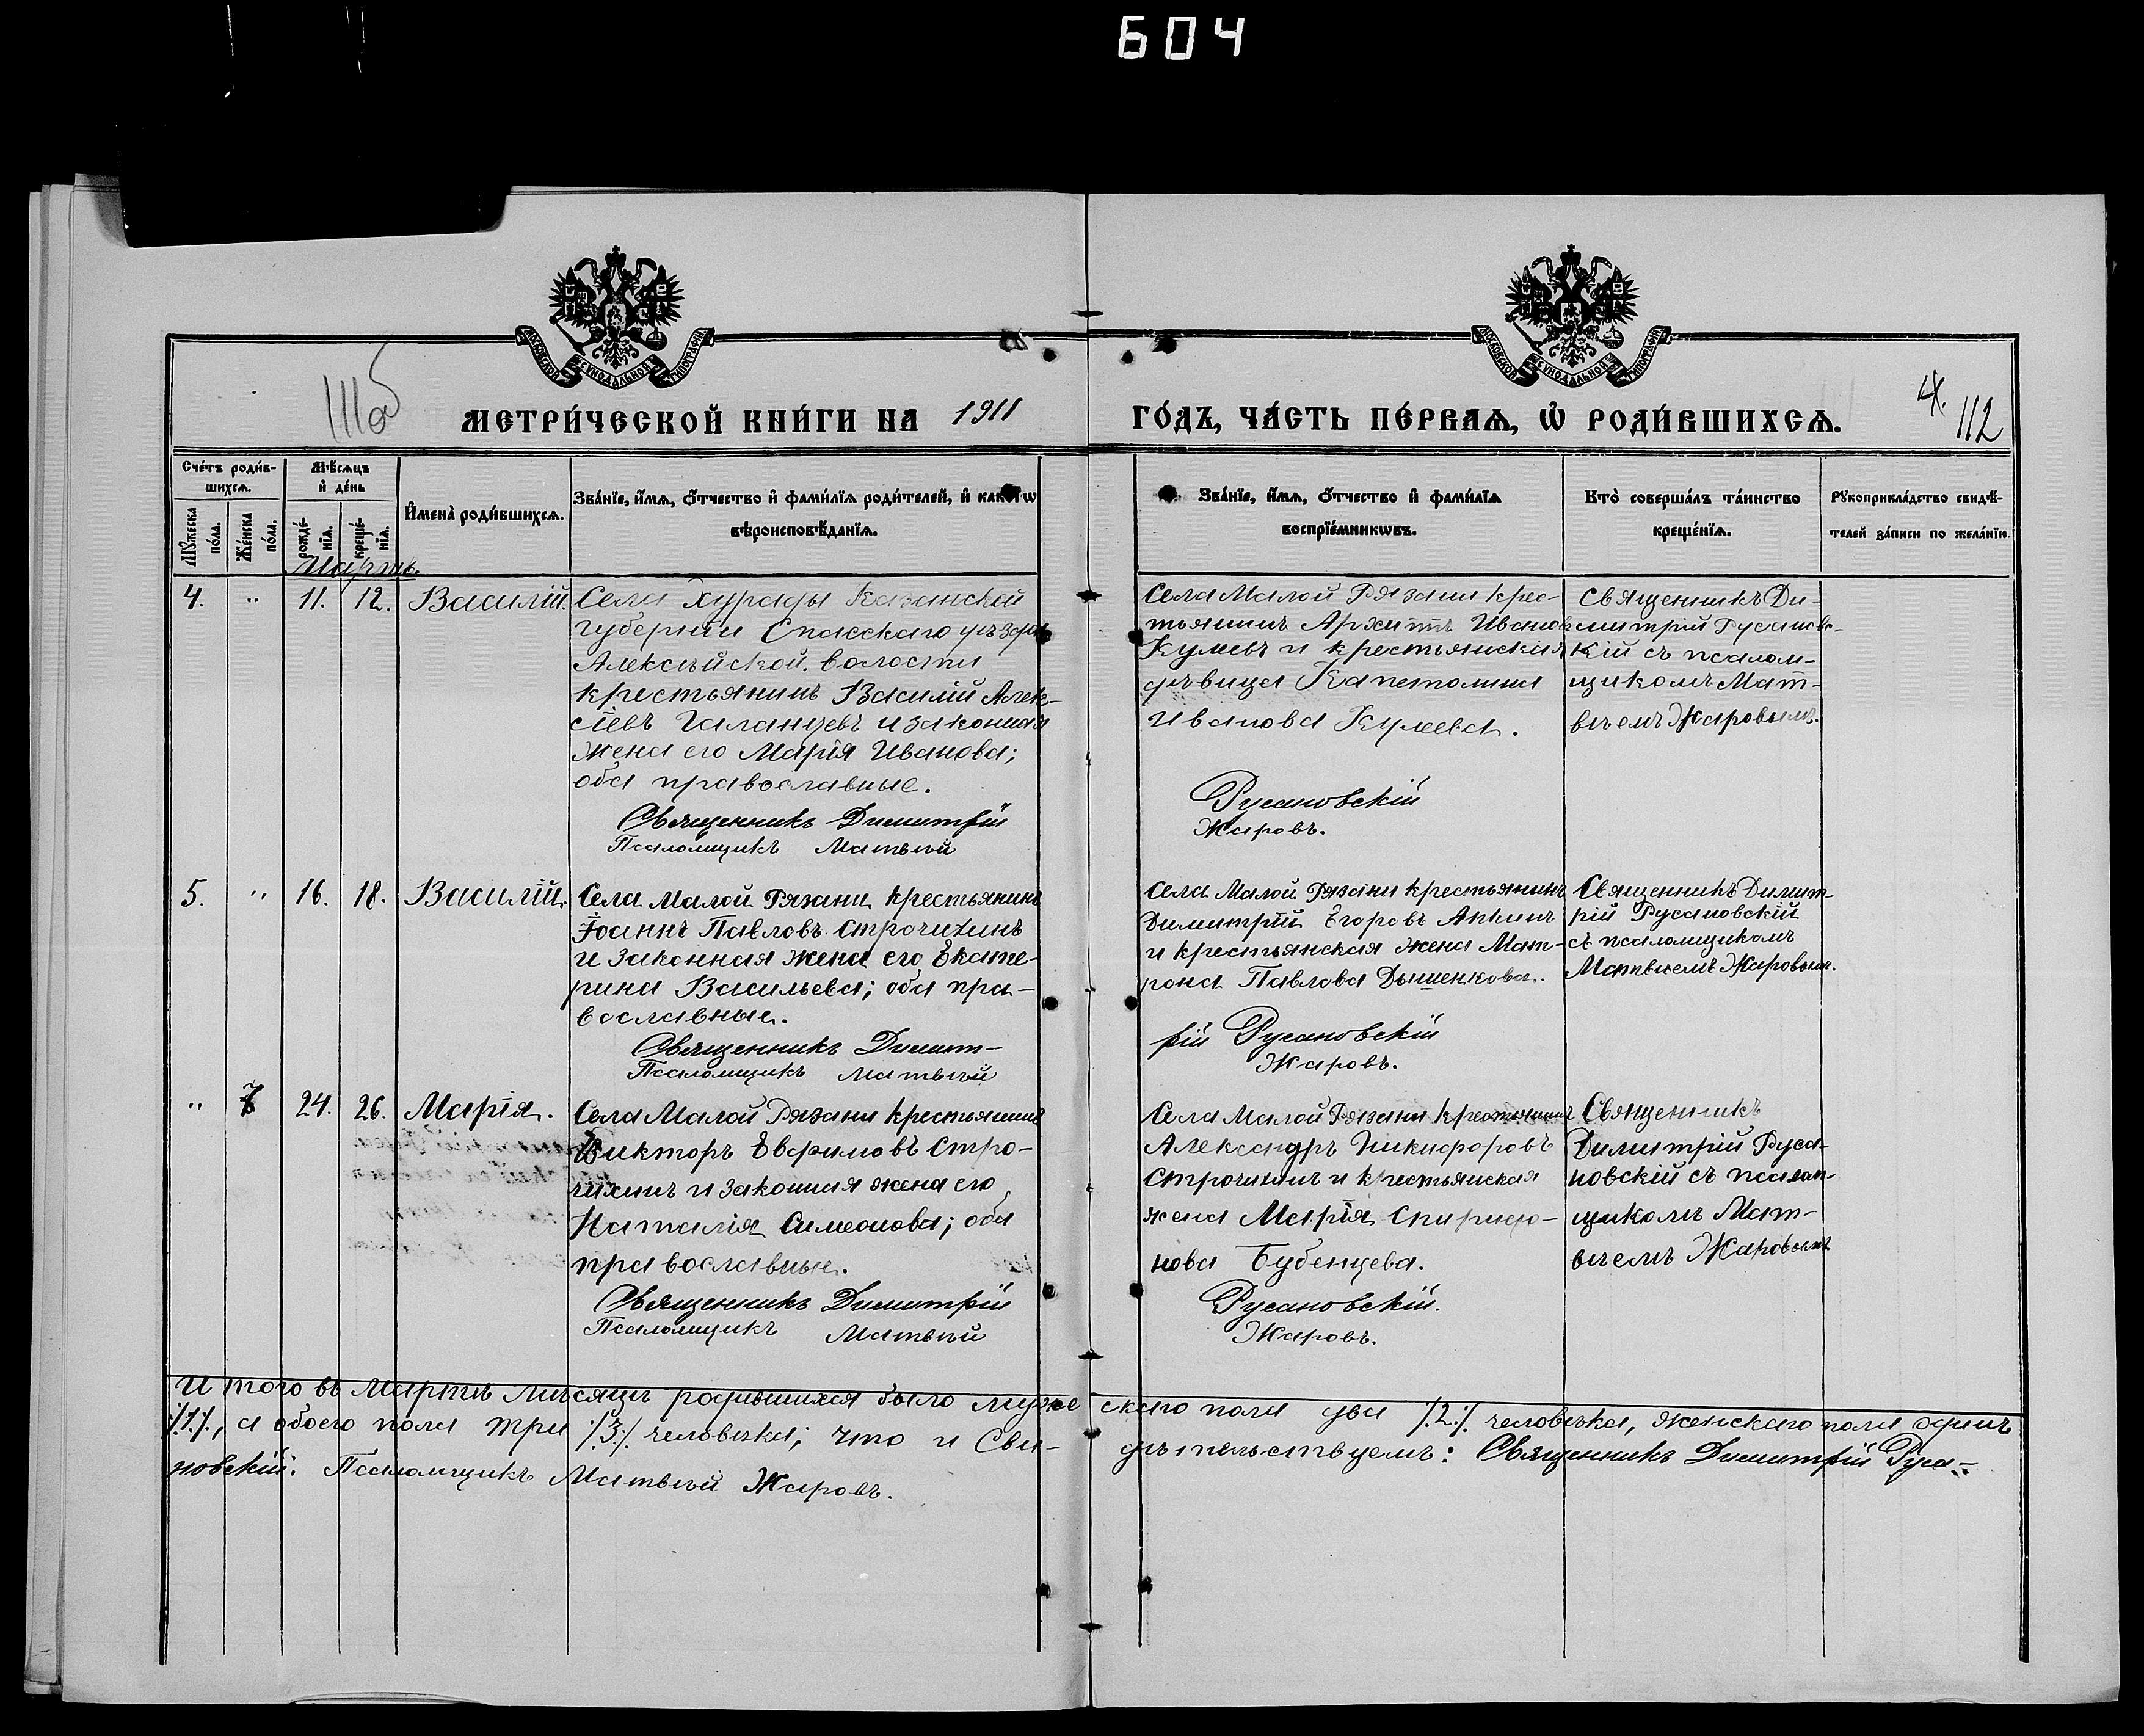 604
МОСКОВСКОЙ СѴНОДАЛЬНОЙ ТИПОГРАФІИ
МОСКОВСКОЙ СѴНОДАЛЬНОЙ ТИПОГРАФІИ
111об
112
МЕТРИ́ЧЕСКОЙ КНИ́ГИ НА 1911 ГО́ДЪ, ЧА́СТЬ ПЕ́РВАѦ, Ѽ РОДИ́ВШИХСѦ.
Сче́тъ роди́в-
шихсѧ.
Мꙋ́жеска по́ла.
Же́нска по́ла.
Мѣ́сѧцъ
и҆ де́нь
рожде́-
нїѧ.
креще́-
нїѧ.
И҆мена̀ роди́вшихсѧ.
Зва́нїе, и҆́мѧ, ѻ҆́тчество и҆ фами́лїѧ роди́телей, и҆ како́гѡ
вѣроисповѣ́данїѧ.
Зва́нїе, и҆́мѧ, ѻ҆́тчество и҆ фами́лїѧ
воспрїе́мникѡвъ.
Кто̀ соверша́лъ та́инство
креще́нїѧ.
Рꙋкоприкла́дство свидѣ́-
телей за́писи по жела́нїю.
Мартъ.
4. " 11. 12. Василій.
Села Хурады Казанской
губерніи Спасскаго уѣзда
Алексѣйской волости
крестьянинъ Василій Алек-
сѣевъ Галанцевъ и законная
жена его Марія Иванова;
оба православные.
Священникъ Димитрій
Псаломщикъ Матвѣй
Села Малой Рязани крес-
тьянинъ Архиппъ Ивановъ
Кулевъ и крестьянская
дѣвица Капетолина
Иванова Кулева.
Русановскій
Жаровъ.
Священникъ Ди-
митрій Русановс-
кій съ псалом-
щикомъ Мат-
вѣемъ Жаровымъ.
5. " 16. 18. Василій.
Села Малой Рязани крестьянинъ
Іоаннъ Павловъ Строчихинъ
и законная жена его Екате-
рина Васильева; оба пра-
вославные.
Священникъ Димит-
Псаломщикъ Матвѣй
Села Малой Рязани крестьянинъ
Димитрій Егоровъ Апкинъ
и крестьянская жена Мат-
рона Павлова Дышенкова.
рій Русановскій
Жаровъ.
Священникъ Димит-
рій Русановскій
съ псаломщикомъ
Матвѣемъ Жаровымъ.
" 24. 26. Марія.
Села Малой Рязани крестьянинъ
Викторъ Евфимовъ Стро-
чихинъ и законная жена его
Наталія Симеонова; оба
православные.
Священникъ Димитрій
Псаломщикъ Матвѣй
Села Малой Рязани крестьянинъ
Александръ Никифоровъ
Строчихинъ и крестьянская
жена Марія Спиридо-
нова Бубенцева.
Русановскій.
Жаровъ.
Священникъ
Димитрій Руса-
новскій съ псалом-
щикомъ Мат-
вѣемъ Жаровымъ
Итого въ Мартѣ мѣсяцѣ родившихся было мужескаго пола два /.2./. человѣка, женскаго пола одинъ
/.1./., а обоего пола три /.3./. человѣка; что и свидѣтельствуемъ: Священникъ Димитрій Руса-
новскій. Псаломщикъ Матвѣй Жаровъ.